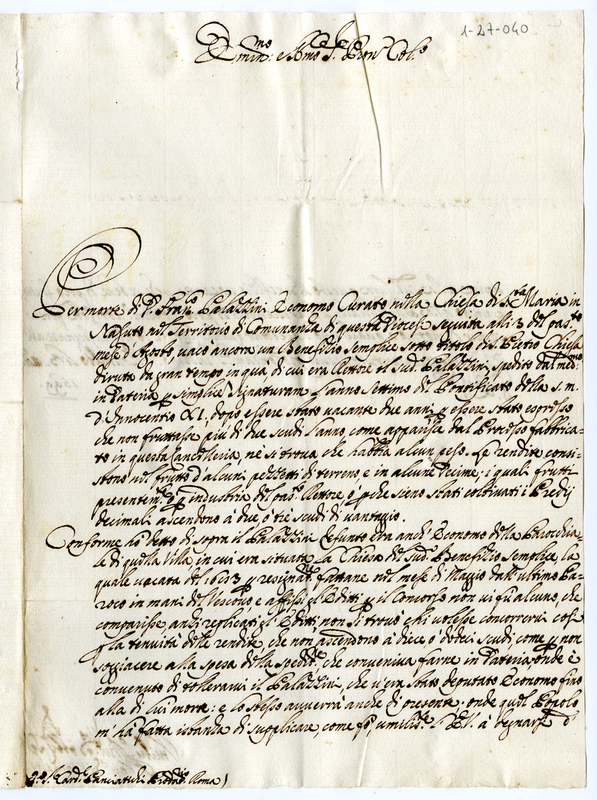 1-27-040
Emin.mo e R.mo S.re Pron Col.mo
Per morte di D. Fran.co Palazzini Economo Curato nella Chiesa di S.ta Maria in
nel Territorio di Comunanza di questa Diocese seguita alli 3 del pas.to
mese d'Agosto vacò ancora un Benefizio semplice sotto titolo di S. Pietro Chiesa
diruta da gran tempo in quà di cui era Rettore il sud.o Palazzini spedito dal med.mo
in Dateria p semplice signaturam l'anno settimo del Pontificato della s. m.
d'Innocentio XI, dopo essere stato vacante due anni, p essere stato espresso
che non fruttasse più di due scudi l'anno, come apparisce dal Processo fabbrica-
to in questa Cancelleria, ne si trova che habbia alcun peso. Le rendite consi-
stono nel frutto d'alcuni pezzetti di terreno, e in alcune Decime, i quali frutti
presentem.te p industria del pas.to Rettore, ò p che sieno stati coltivati i Predij
decimali ascendono à due ò trè scudi di vantaggio.
Conforme hò detto di sopra il Palazzini defunto era anch'Economo della Parochia-
le di quella Villa, in cui era situata la Chiesa del sud.o Benefizio semplice, la
quale vacata del 1683 p resignat.ne fattane nel mese di Maggio dall'ultimo Pa-
roco in mani del Vescovo, e affissi gl'Editti p il Concorso non vi fù alcuno, che
comparisse, anzi replicati gl'Editti non si trovò chi volesse concorrervi così
p la tenuità delle rendite, che non ascendono à dieci ò dodici scudi, come p non
soggiacere alla spesa della spedit.ne che conveniva farne in Dateria, onde è
convenuto di tollerarvi il Palazzini, che v'era stato deputato Economo fino
alla di lui morte: e lo stesso avverrà anche di presente: onde quel Popolo
m'hà fatta istanza di supplicare, come fò umilm.te V. E. à degnarsi d
S.r Card.le Panciatichi Prodat.o Roma)